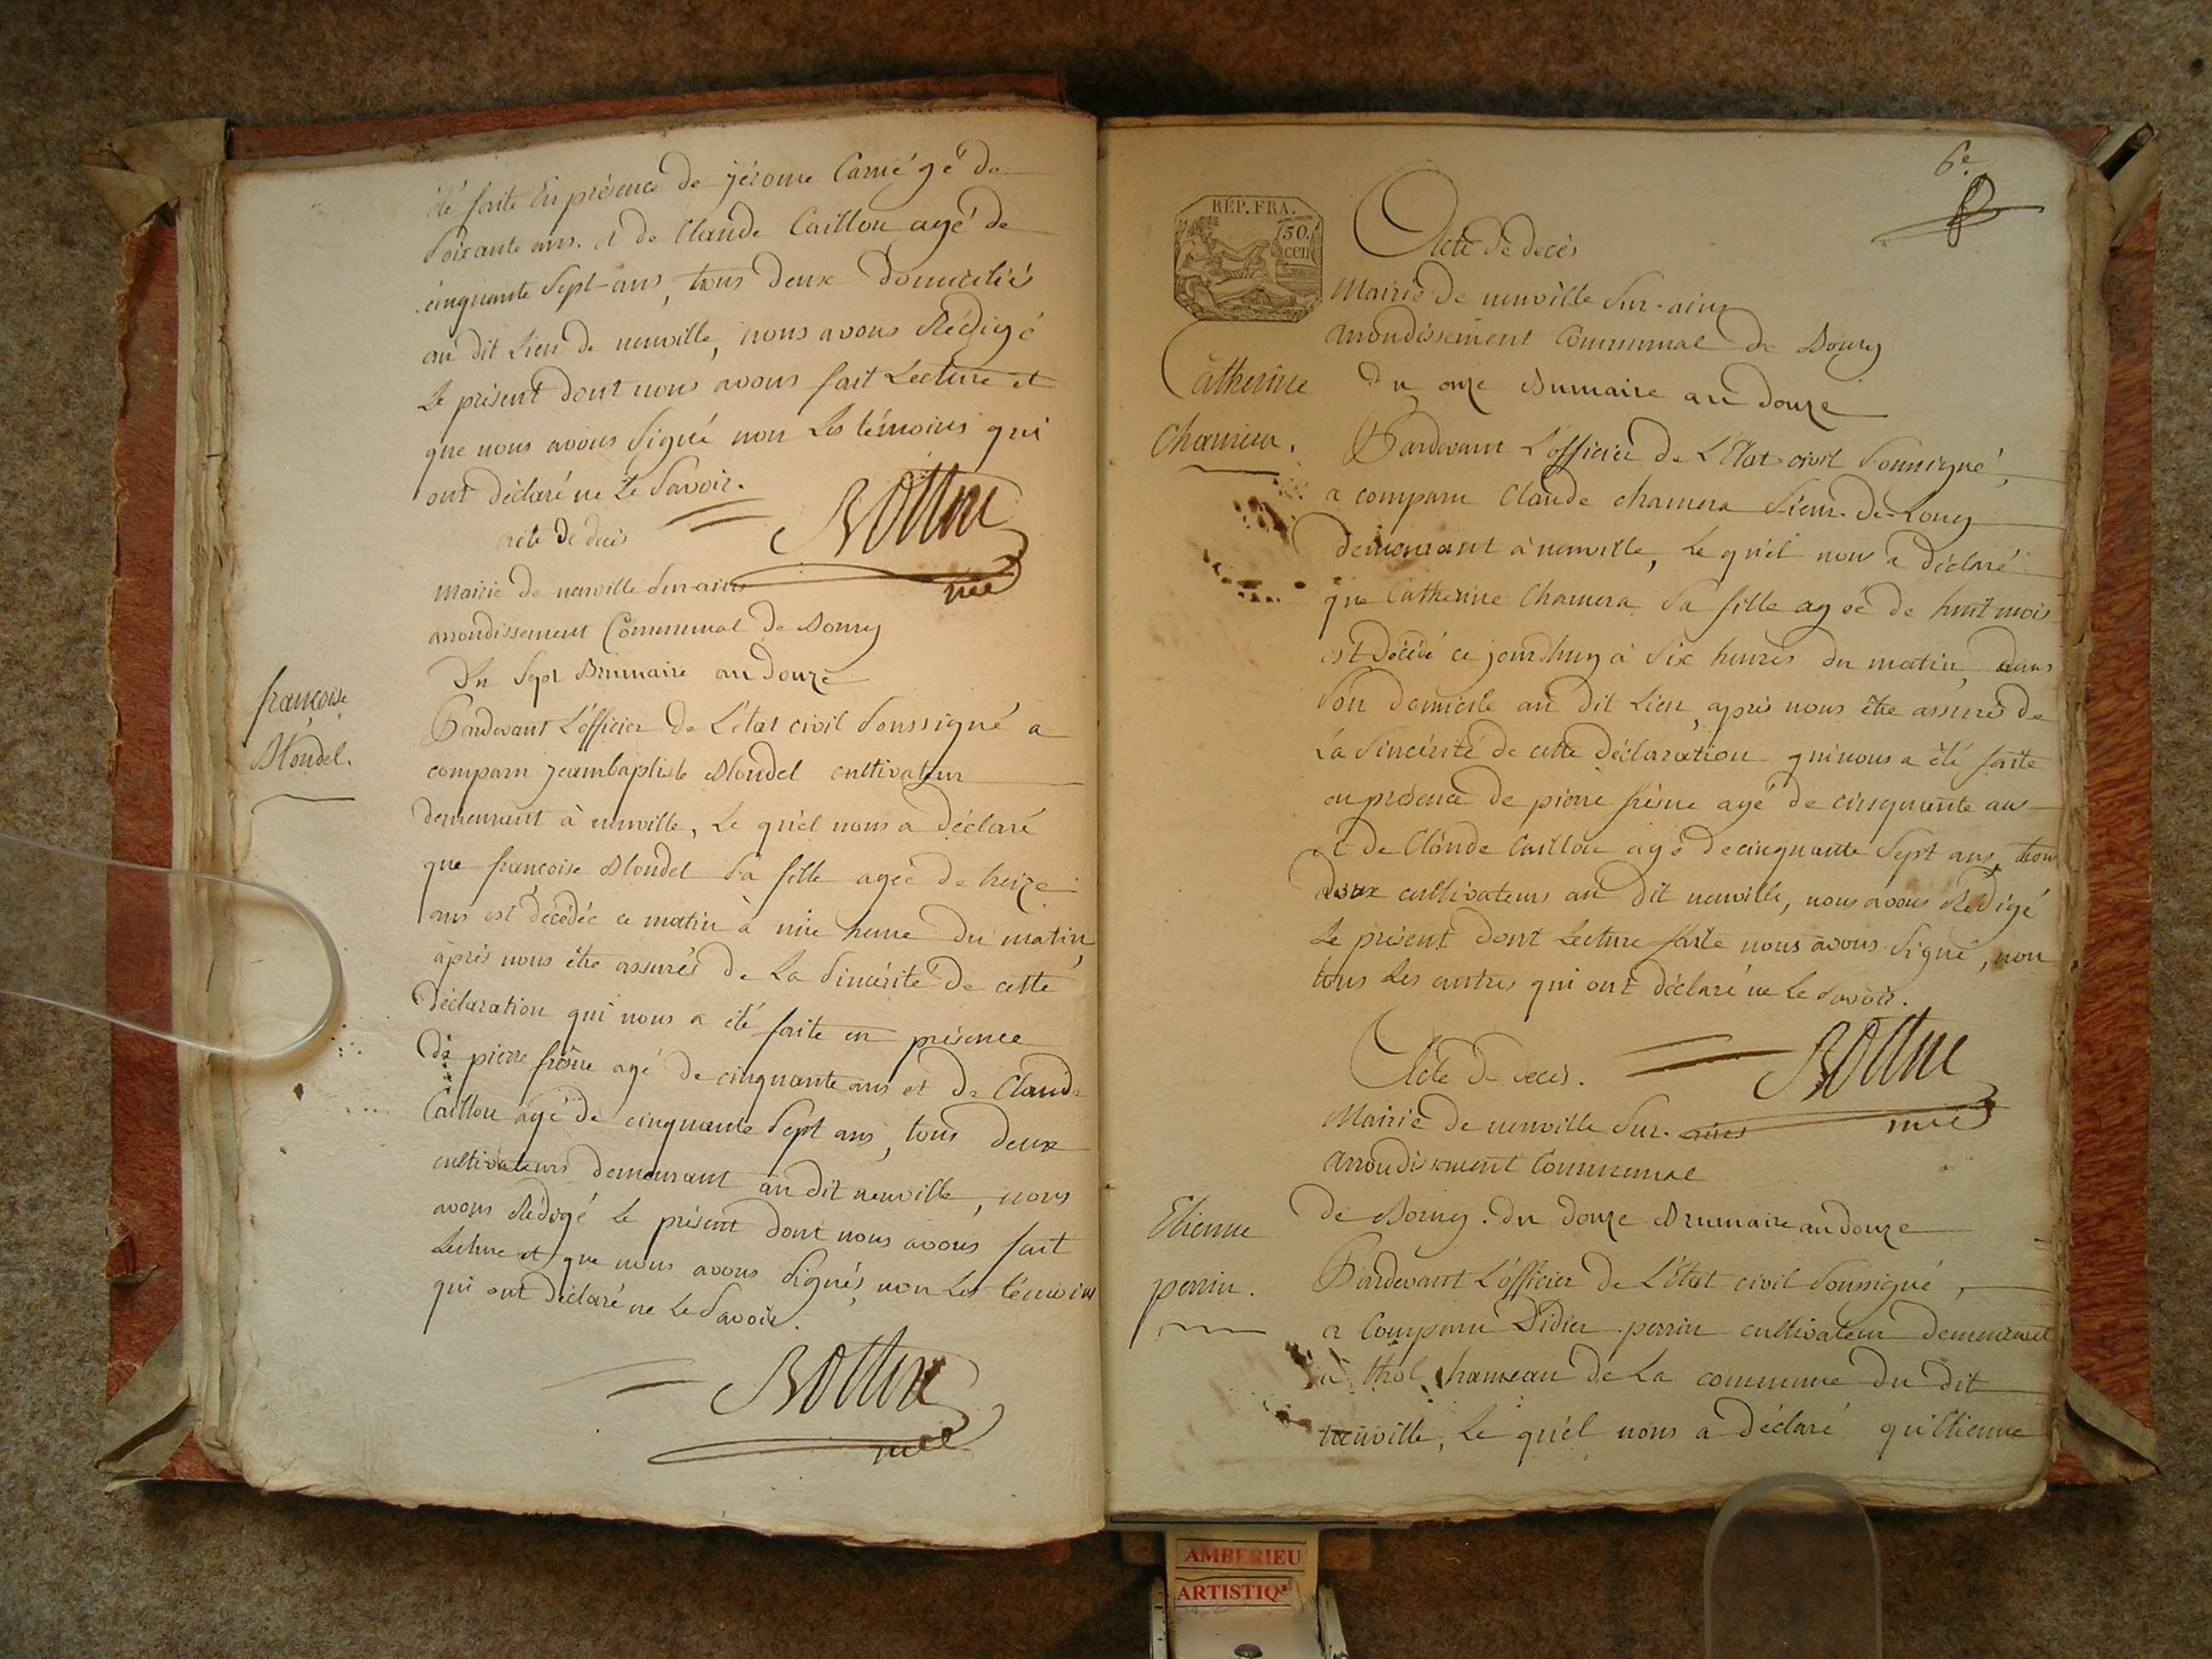 été faite En présence de jérome Carrié gé de
Soixante ans. et de Claude Caillou agé de
cinquante Sept ans, tous deux domiciliés
au dit Lieu de neuville, nous avons Rédigé
Le présent dont nous avons fait Lecture et
que nous avons Signé non Les témoins qui
ont déclaré ne Le Savoir.
acte de deces
Mairie de neuville Sur ain
arrondissement Communal de Bourg
Du Sept Brumaire an douze
françoise
Blondel.
Pardevant L'officier de L'état civil Soussigné a
comparu jeambaptiste Blondel cultivateur
demeurant à neuville, Le quel nous a déclaré
que françoise Blondel Sa fille agée de treize
ans est décédée ce matin à une heure du matin,
après nous être assurés de La Sincérité de cette
déclaration qui nous a été faite en présence
de pierre frêne agé de cinquante ans et de Claude
Caillou agé de cinquante Sept ans, tous deux
cultivateurs demeurant au dit neuville, nous
avons Rédigé Le présent dont nous avons fait
Lecture et que nous avons Signés non Les témoins
qui ont déclaré ne Le Savoir.
6e
REP. FRA.
50.
cen
Acte de decès
Mairie de neuville Sur-ain
arrondissement Communal de Bourg
du onze Brumaire an douze
Catherine
Pardevant L'officier de L'Etat civil Soussigné,
a comparu Claude chamera
demeurant à neuville, Le quel nous a déclaré
que Catherine Chamera Sa fille agée de huit mois
est décédé ce jourdhuy à Six heures du matin, dans
Son domicile au dit Lieu, après nous être assurés de
La Sincérité de cette déclaration qui nous a été faite
en présence de pierre frêne agé de cinquante ans
et de Claude Caillou agé de cinquante Sept ans, tous
deux cultivateurs au dit neuville, nous avons Rédigé
Le présent dont Lecture faite nous avons Signé, non
tous Les autres qui ont déclaré ne Le Savoir.
Acte de deces.
Mairie de neuville Sur. ain
arrondissement Communal
de Bourg. du douze Brumaire an douze
Etienne
perrin.
Pardevant L'officier de L'Etat civil Soussigné,
a Comparu Didier perrin cultivateur demeurant
à thol hameau de La commune du dit
neuville, Le quel nous a déclaré qu'Etienne
AMBERIEU
ARTISTIQ